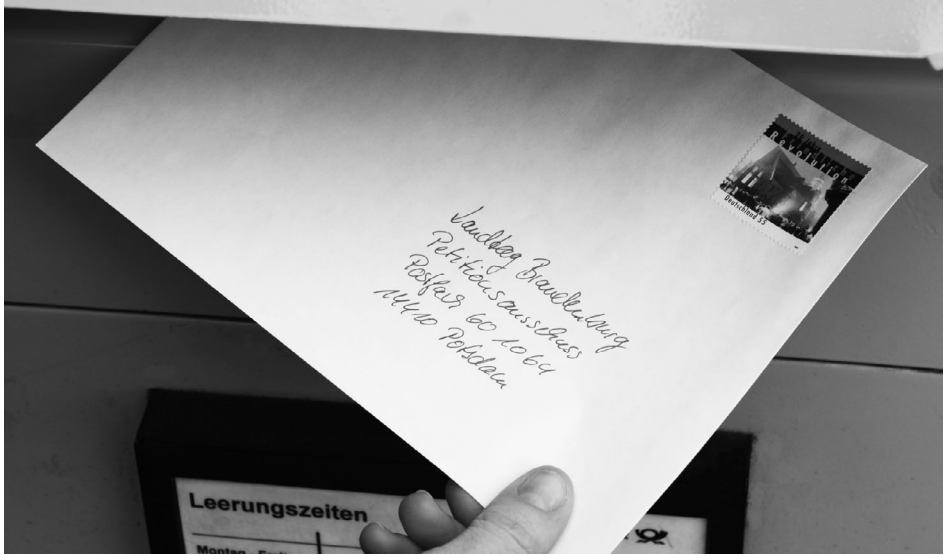 Revolution
Deutschland 55
Landtag Brandenburg
Petitionsausschuss
Postfach 60 10 64
14410 Potsdam
Leerungszeiten
Montag